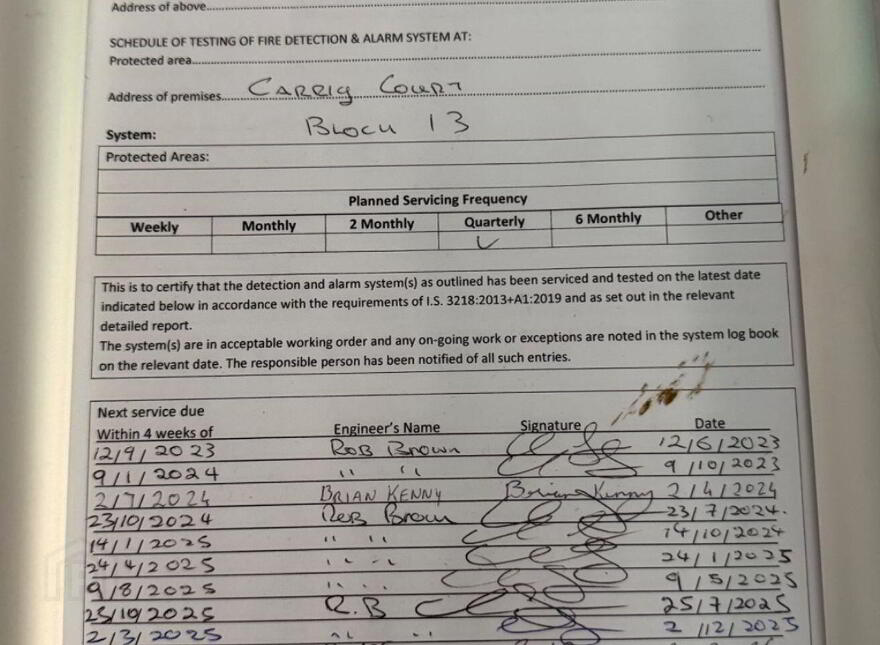 Address of above..........
SCHEDULE OF TESTING OF FIRE DETECTION & ALARM SYSTEM AT:
Protected area..........
Address of premises.......... CARRIG COURT
BLOCK 13
System:
Protected Areas:
Planned Servicing Frequency
Weekly Monthly 2 Monthly Quarterly 6 Monthly Other
✓
This is to certify that the detection and alarm system(s) as outlined has been serviced and tested on the latest date
indicated below in accordance with the requirements of I.S. 3218:2013+A1:2019 and as set out in the relevant
detailed report.
The system(s) are in acceptable working order and any on-going work or exceptions are noted in the system log book
on the relevant date. The responsible person has been notified of all such entries.
Next service due
Within 4 weeks of Engineer's Name Signature Date
12/9/2023 ROB Brown 12/6/2023
9/1/2024 " " 9/10/2023
2/7/2024 BRIAN KENNY Brian Kenny 2/4/2024
23/10/2024 ROB Brown 23/7/2024.
14/1/2025 " " 14/10/2024
24/4/2025 " " 24/1/2025
9/8/2025 " " 9/5/2025
25/10/2025 R.B 25/7/2025
2/3/2025 " " 2/12/2025